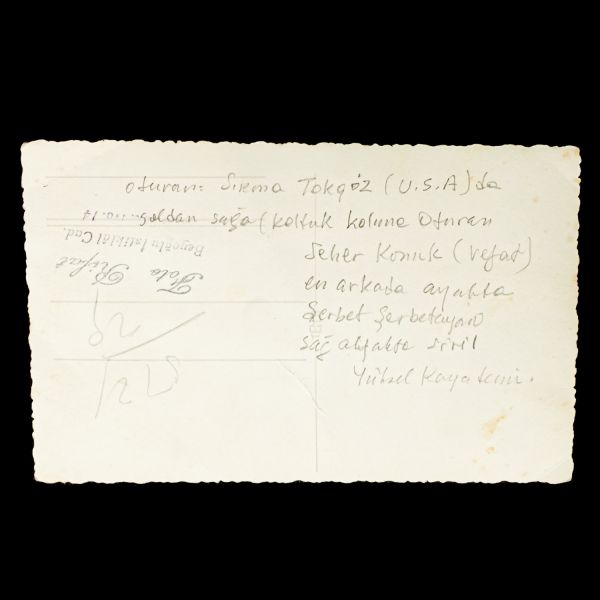 oturan: Sırma Tokgöz (U.S.A) da
soldan sağa (koltuk koluna oturan
Seher Konuk (vefat)
en arkada ayakta
Serbet Şerbetçi
sağ ayakta sivil
Yüksel Kayatemir.
Foto Rifat
Beyoğlu İstiklâl Cad.